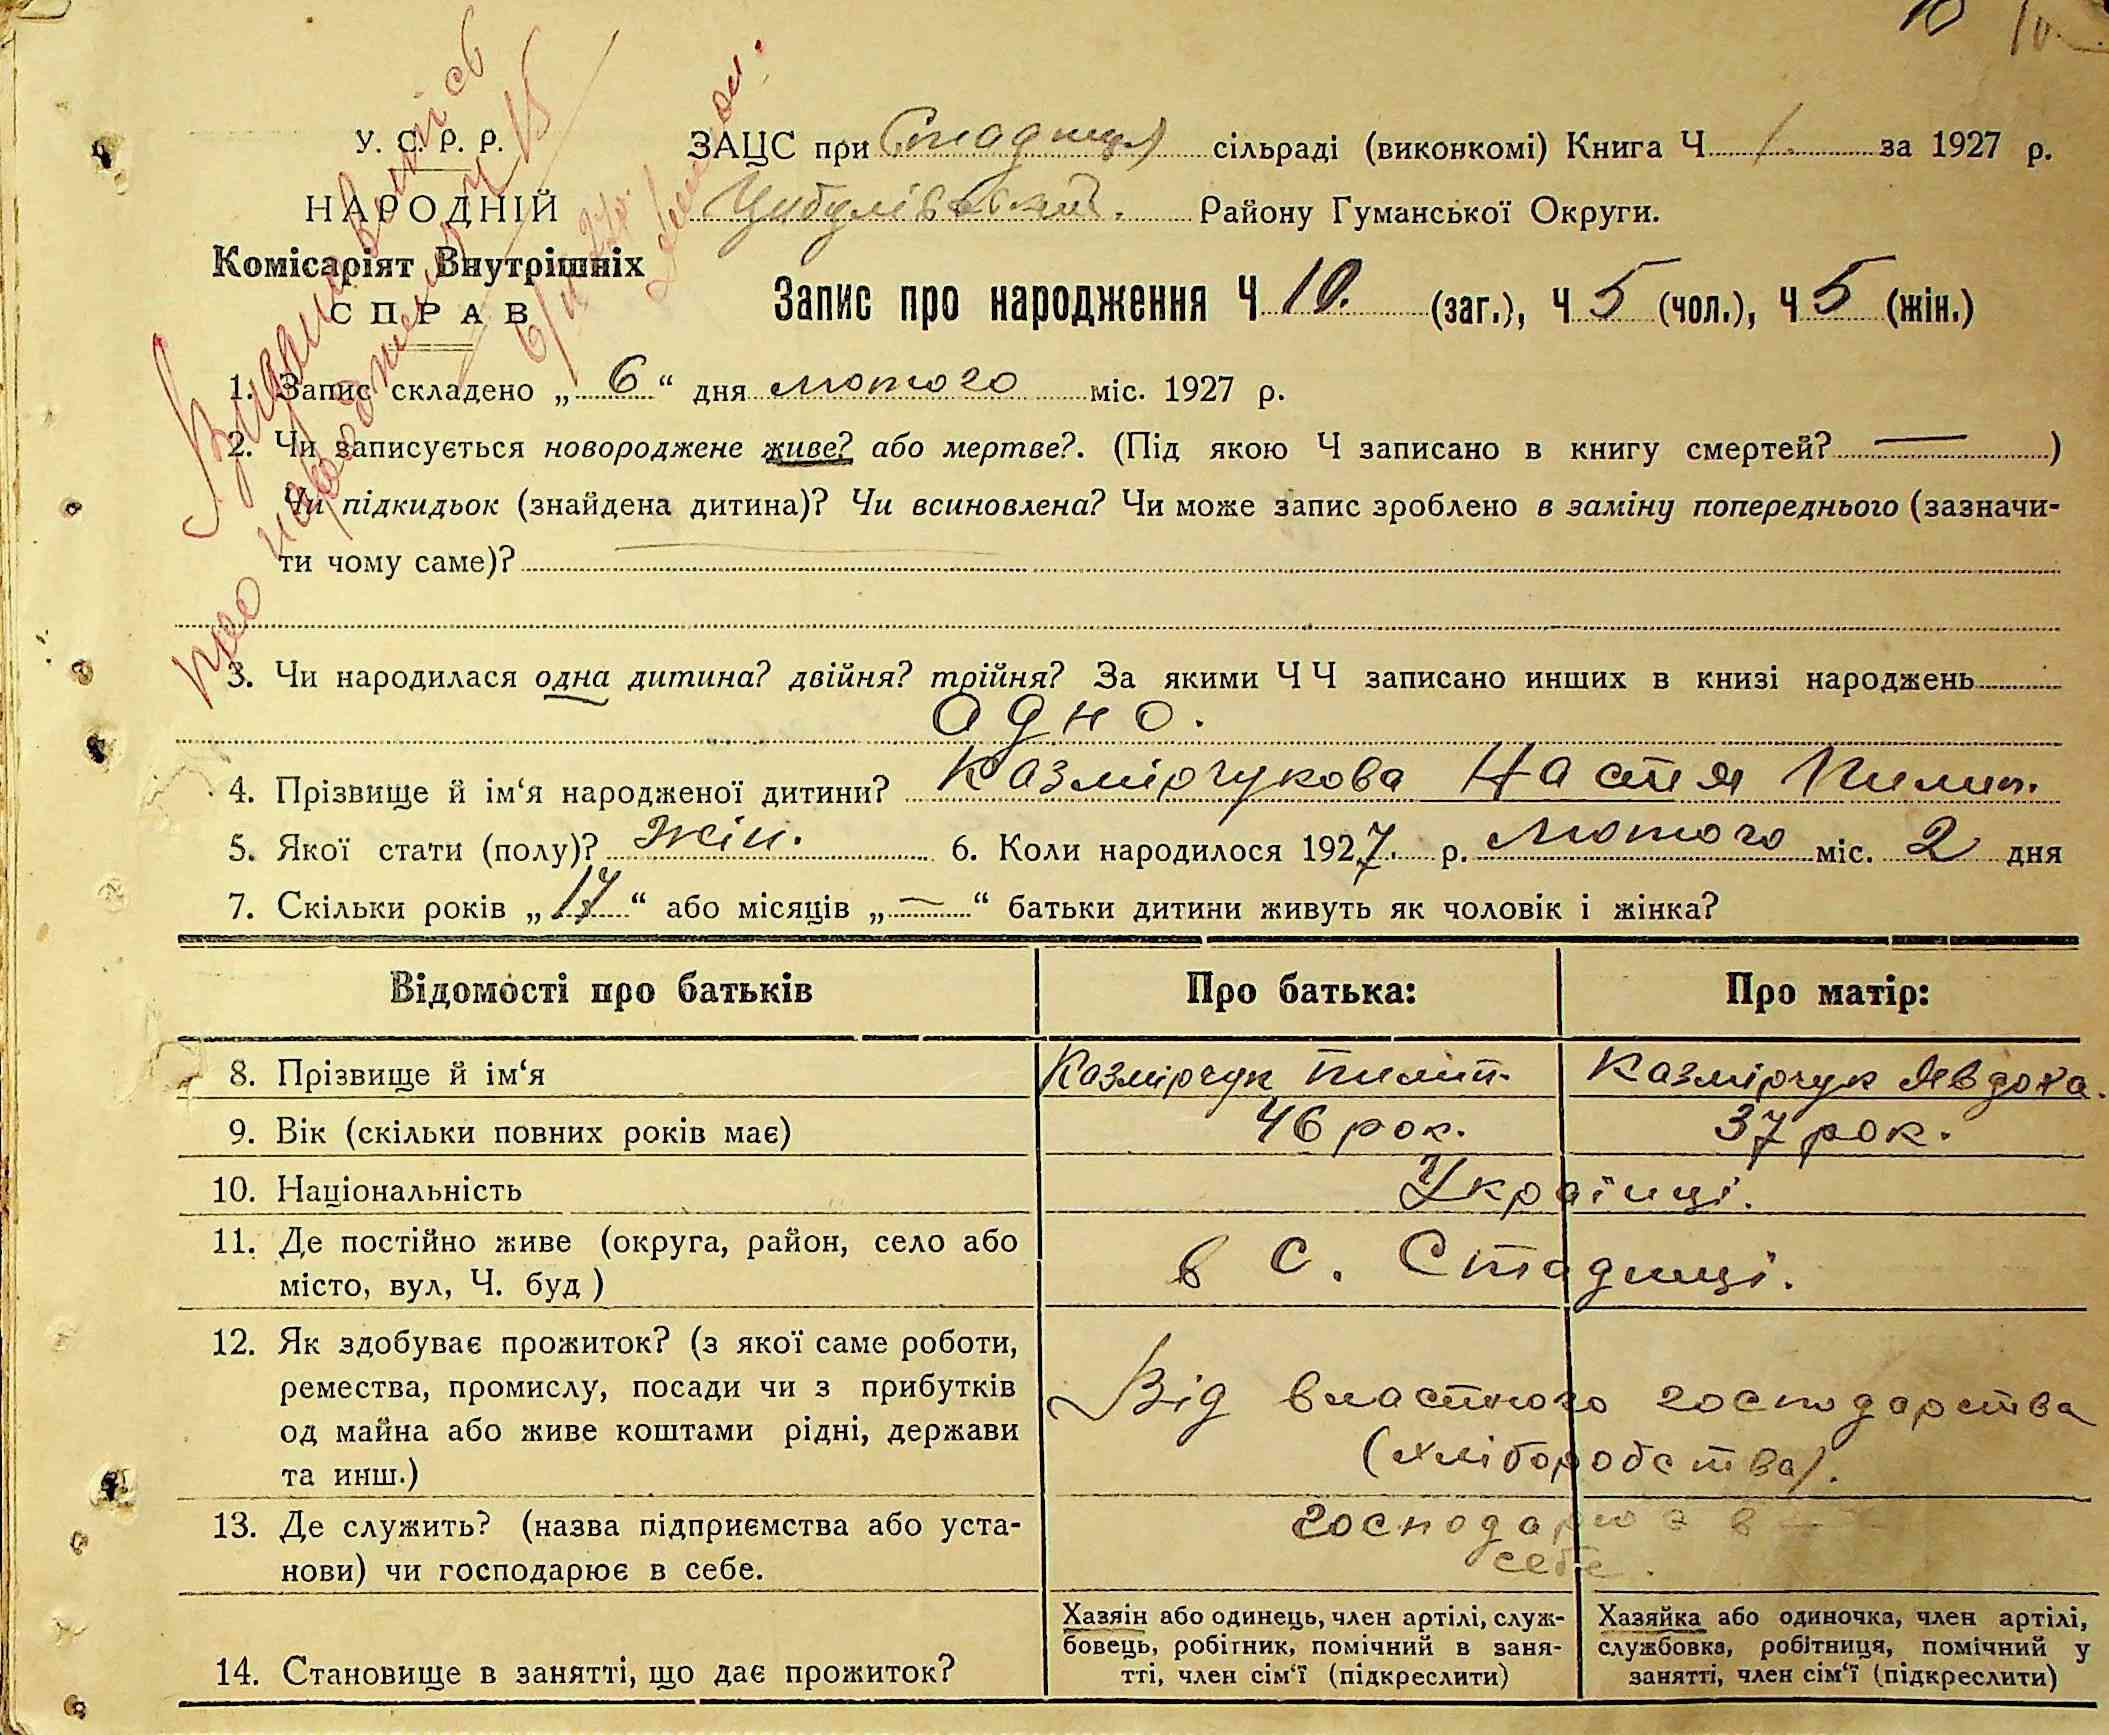 10
У. С. Р. Р.
НАРОДНІЙ
Комісаріят Внутрішніх
СПРАВ
ЗАЦС при Стадниця сільраді (виконкомі) Книга Ч 1 за 1927 р.
Цибулівський. Району Гуманської Округи.
Запис про народження Ч 10. (заг.), Ч 5 (чол.), Ч 5 (жін.)
про народження
1. Запис складено „ 6 “ дня лютого міс. 1927 р.
2. Чи записується новороджене живе? або мертве?. (Під якою Ч записано в книгу смертей? — )
Чи підкидьок (знайдена дитина)? Чи всиновлена? Чи може запис зроблено в заміну попереднього (зазначи-
ти чому саме)?
3. Чи народилася одна дитина? двійня? трійня? За якими ЧЧ записано инших в книзі народжень
одно.
4. Прізвище й ім‘я народженої дитини? Казмірчукова Настя Пилип.
5. Якої стати (полу)? жін. 6. Коли народилося 1927. р. лютого міс. 2 дня
7. Скільки років „ 17 “ або місяців „ — “ батьки дитини живуть як чоловік і жінка?
Відомості про батьків Про батька: Про матір:
8. Прізвище й ім‘я Казмірчук Пилип. Казмірчук Явдоха.
9. Вік (скільки повних років має) 46 рок. 37 рок.
10. Національність Українці.
11. Де постійно живе (округа, район, село або
місто, вул, Ч. буд ) в с. Стадниці.
12. Як здобуває прожиток? (з якої саме роботи,
ремества, промислу, посади чи з прибутків
од майна або живе коштами рідні, держави
та инш.)
Від властного господарства
(хліборобства).
13. Де служить? (назва підприємства або уста-
нови) чи господарює в себе.
господарює в
себе.
14. Становище в занятті, що дає прожиток?
Хазяін або одинець, член артілі, служ-
бовець, робітник, помічний в заня-
тті, член сім‘ї (підкреслити)
Хазяйка або одиночка, член артілі,
службовка, робітниця, помічний у
занятті, член сім‘ї (підкреслити)